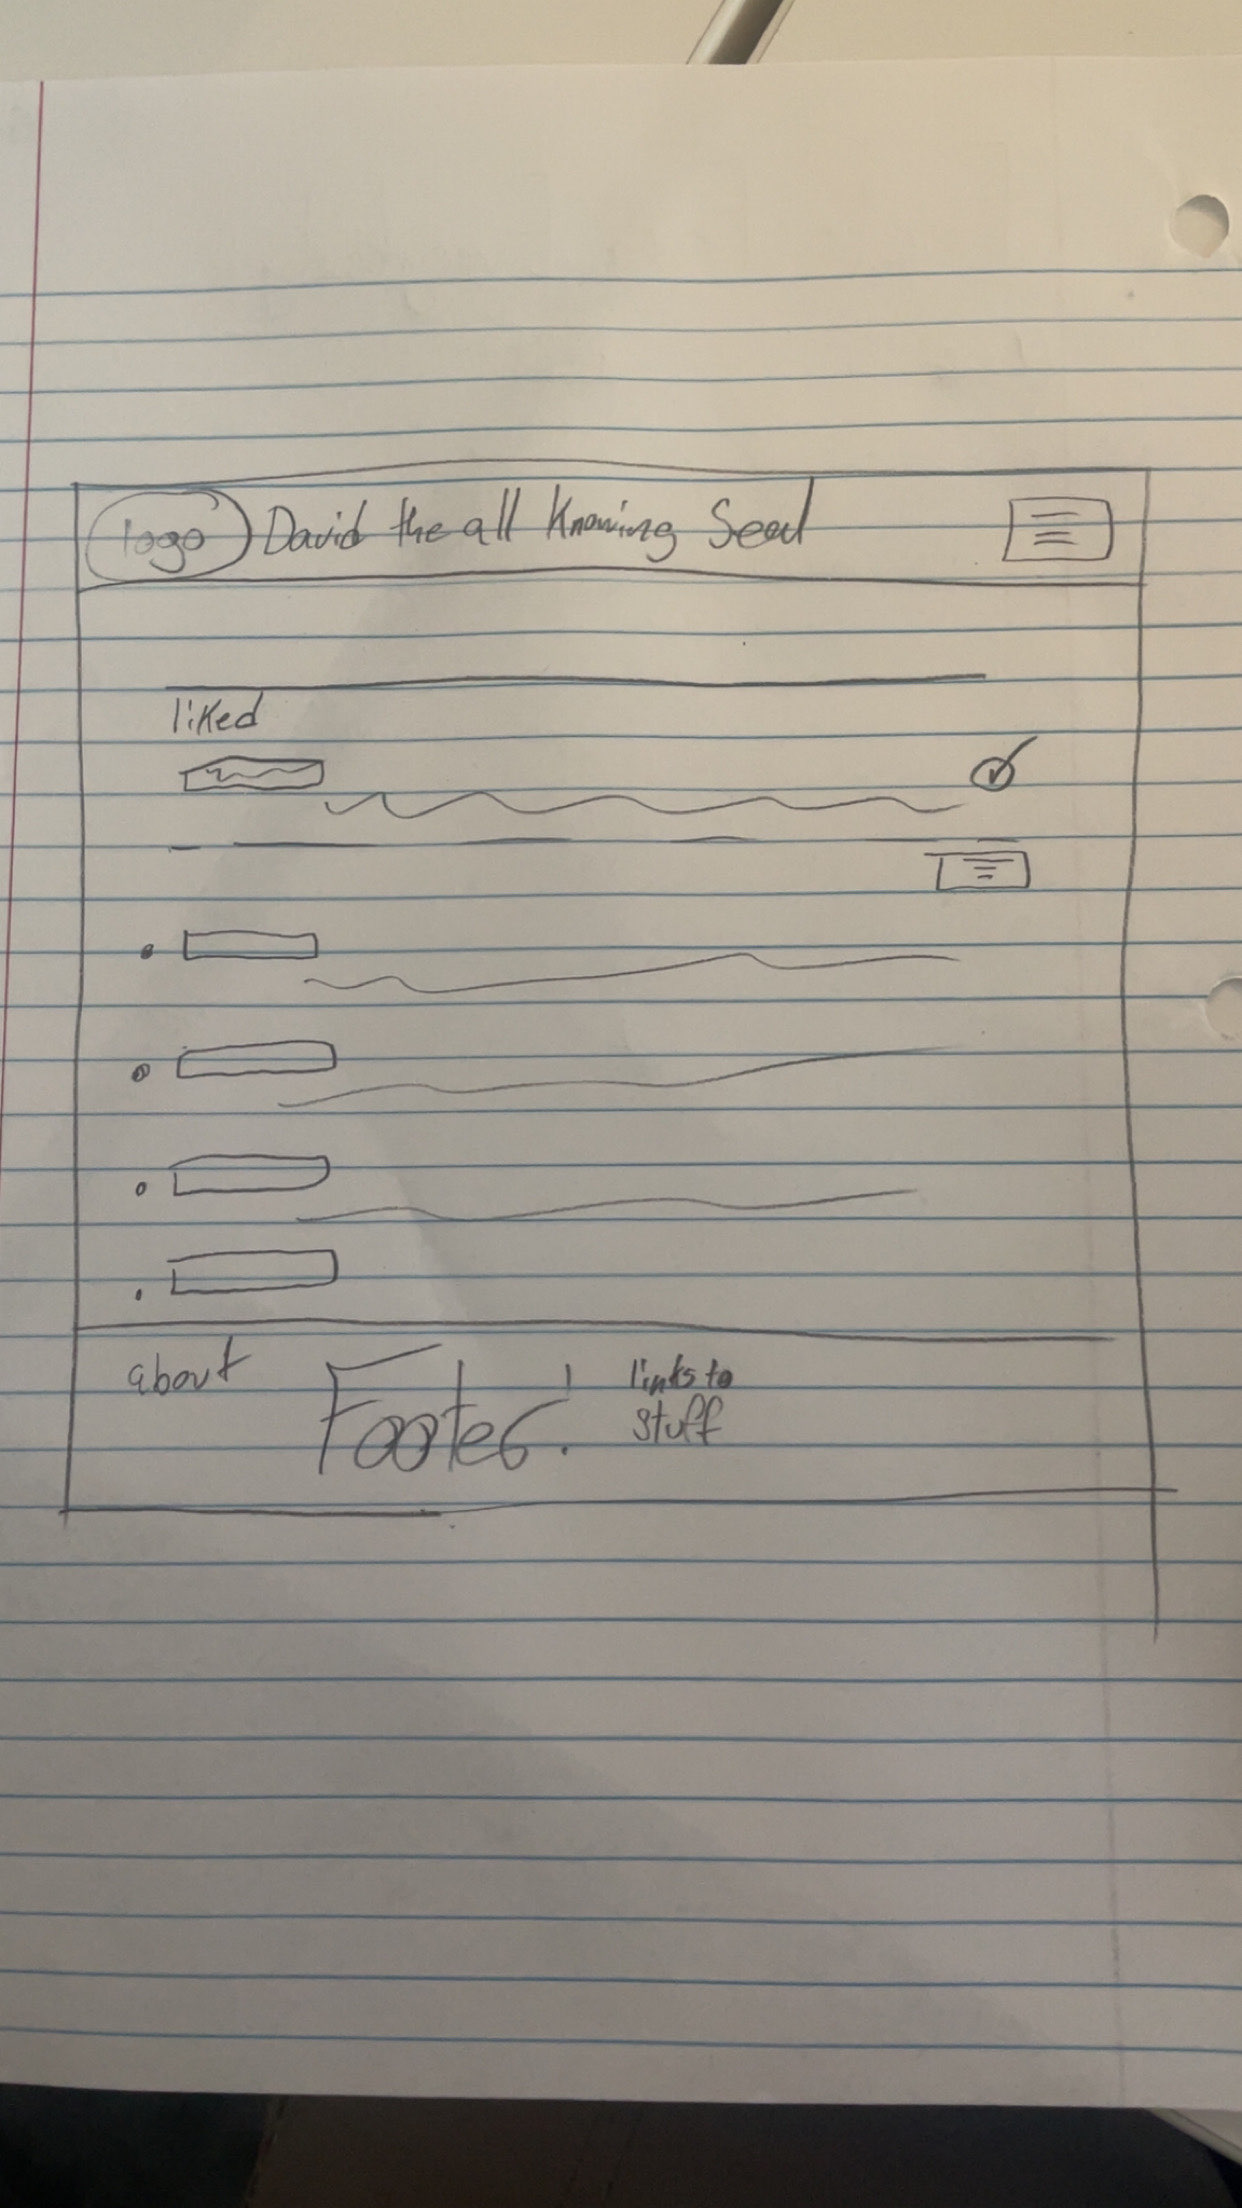 logo David the all Knowing Seed
liked
about Footer! links to
stuff